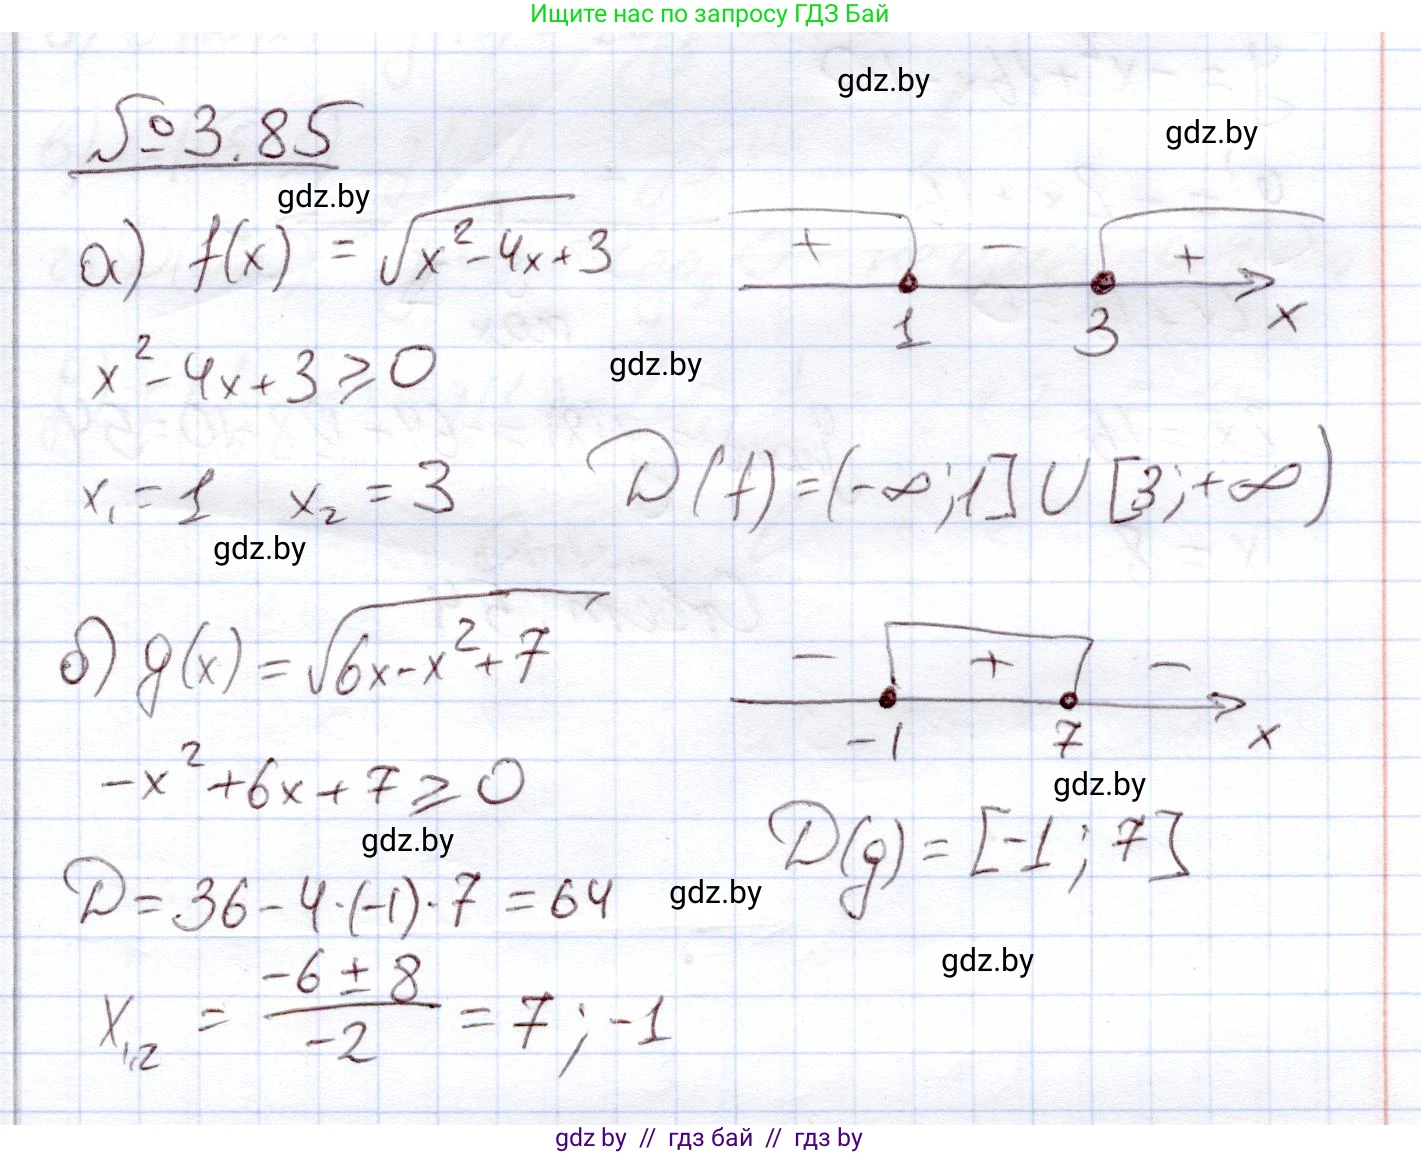 Ищите нас по запросу ГДЗ Бай
gdz.by
gdz.by
№ 3.85
gdz.by
а) f(x) = √(x²-4x+3)
+ - +
1 3 x
x²-4x+3 ⩾ 0
gdz.by
x₁ = 1 x₂ = 3
D(f) = (-∞;1] ∪ [3;+∞)
gdz.by
б) g(x) = √(6x-x²+7)
- + -
-1 7 x
-x²+6x+7 ⩾ 0
gdz.by
gdz.by
D(g) = [-1; 7]
D = 36-4·(-1)·7 = 64
gdz.by
gdz.by
x₁,₂ = (-6±8)/(-2) = 7; -1
gdz by // гдз бай // гдз by